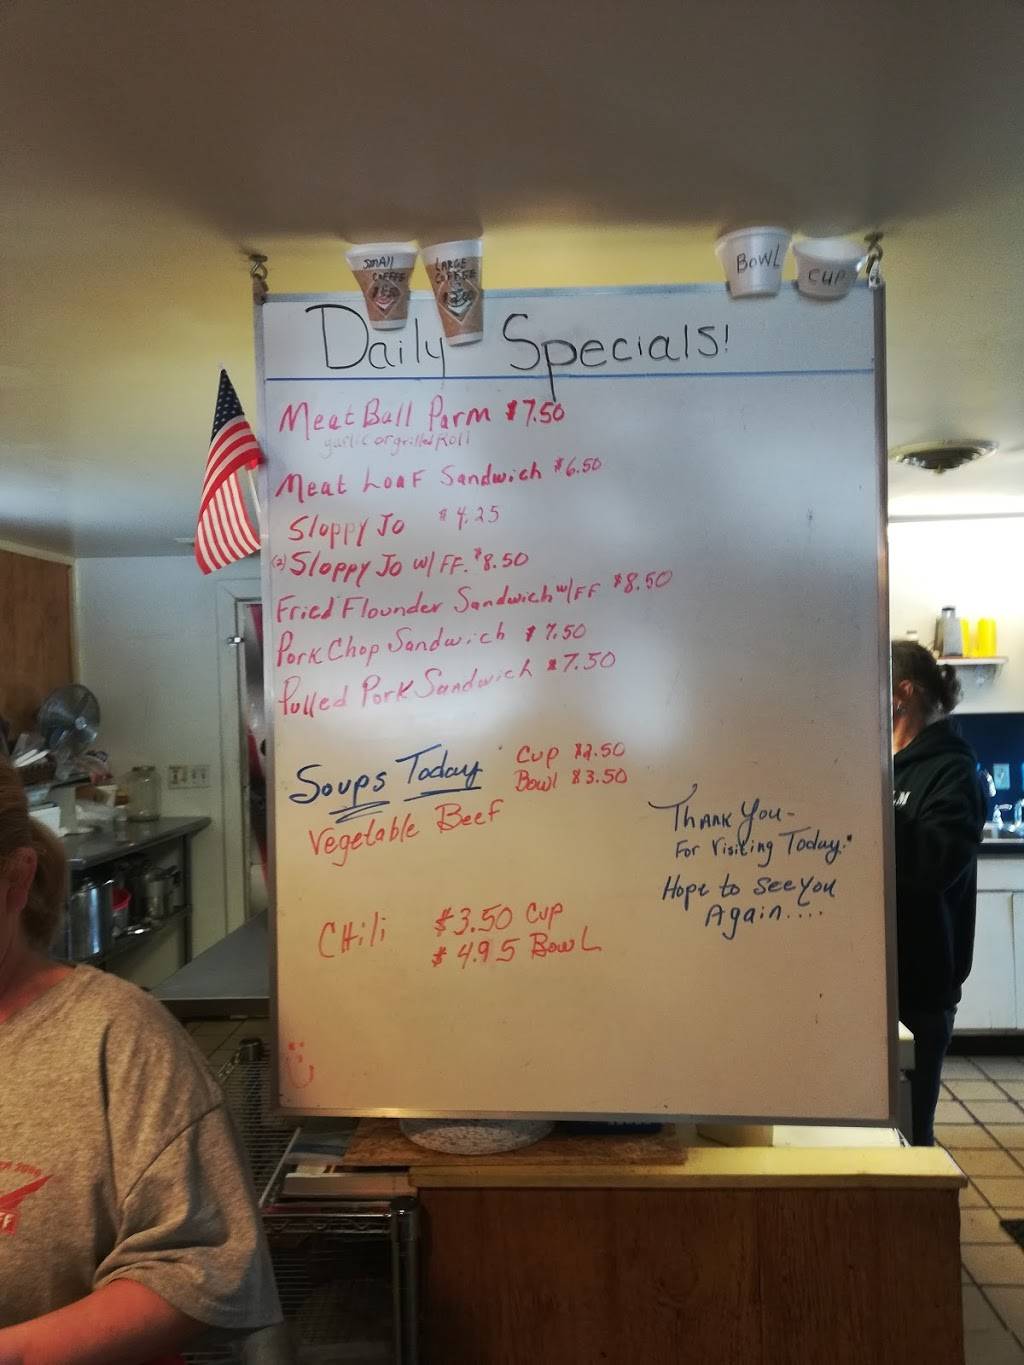 SMALL
COFFEE
LARGE
COFFEE
BOWL
CUP
Daily Specials!
Meat Ball Parm $7.50
garlic or grilled Roll
Meat Loaf Sandwich $6.50
Sloppy Jo $4.25
(2) Sloppy Jo w/ FF. $8.50
Fried Flounder Sandwich w/FF $8.50
Pork Chop Sandwich $7.50
Pulled Pork Sandwich $7.50
Soups Today Cup $2.50
Bowl $3.50
Vegetable Beef
Thank You-
For Visiting Today.
Hope to see you
Again....
CHili $3.50 Cup
$4.95 Bowl